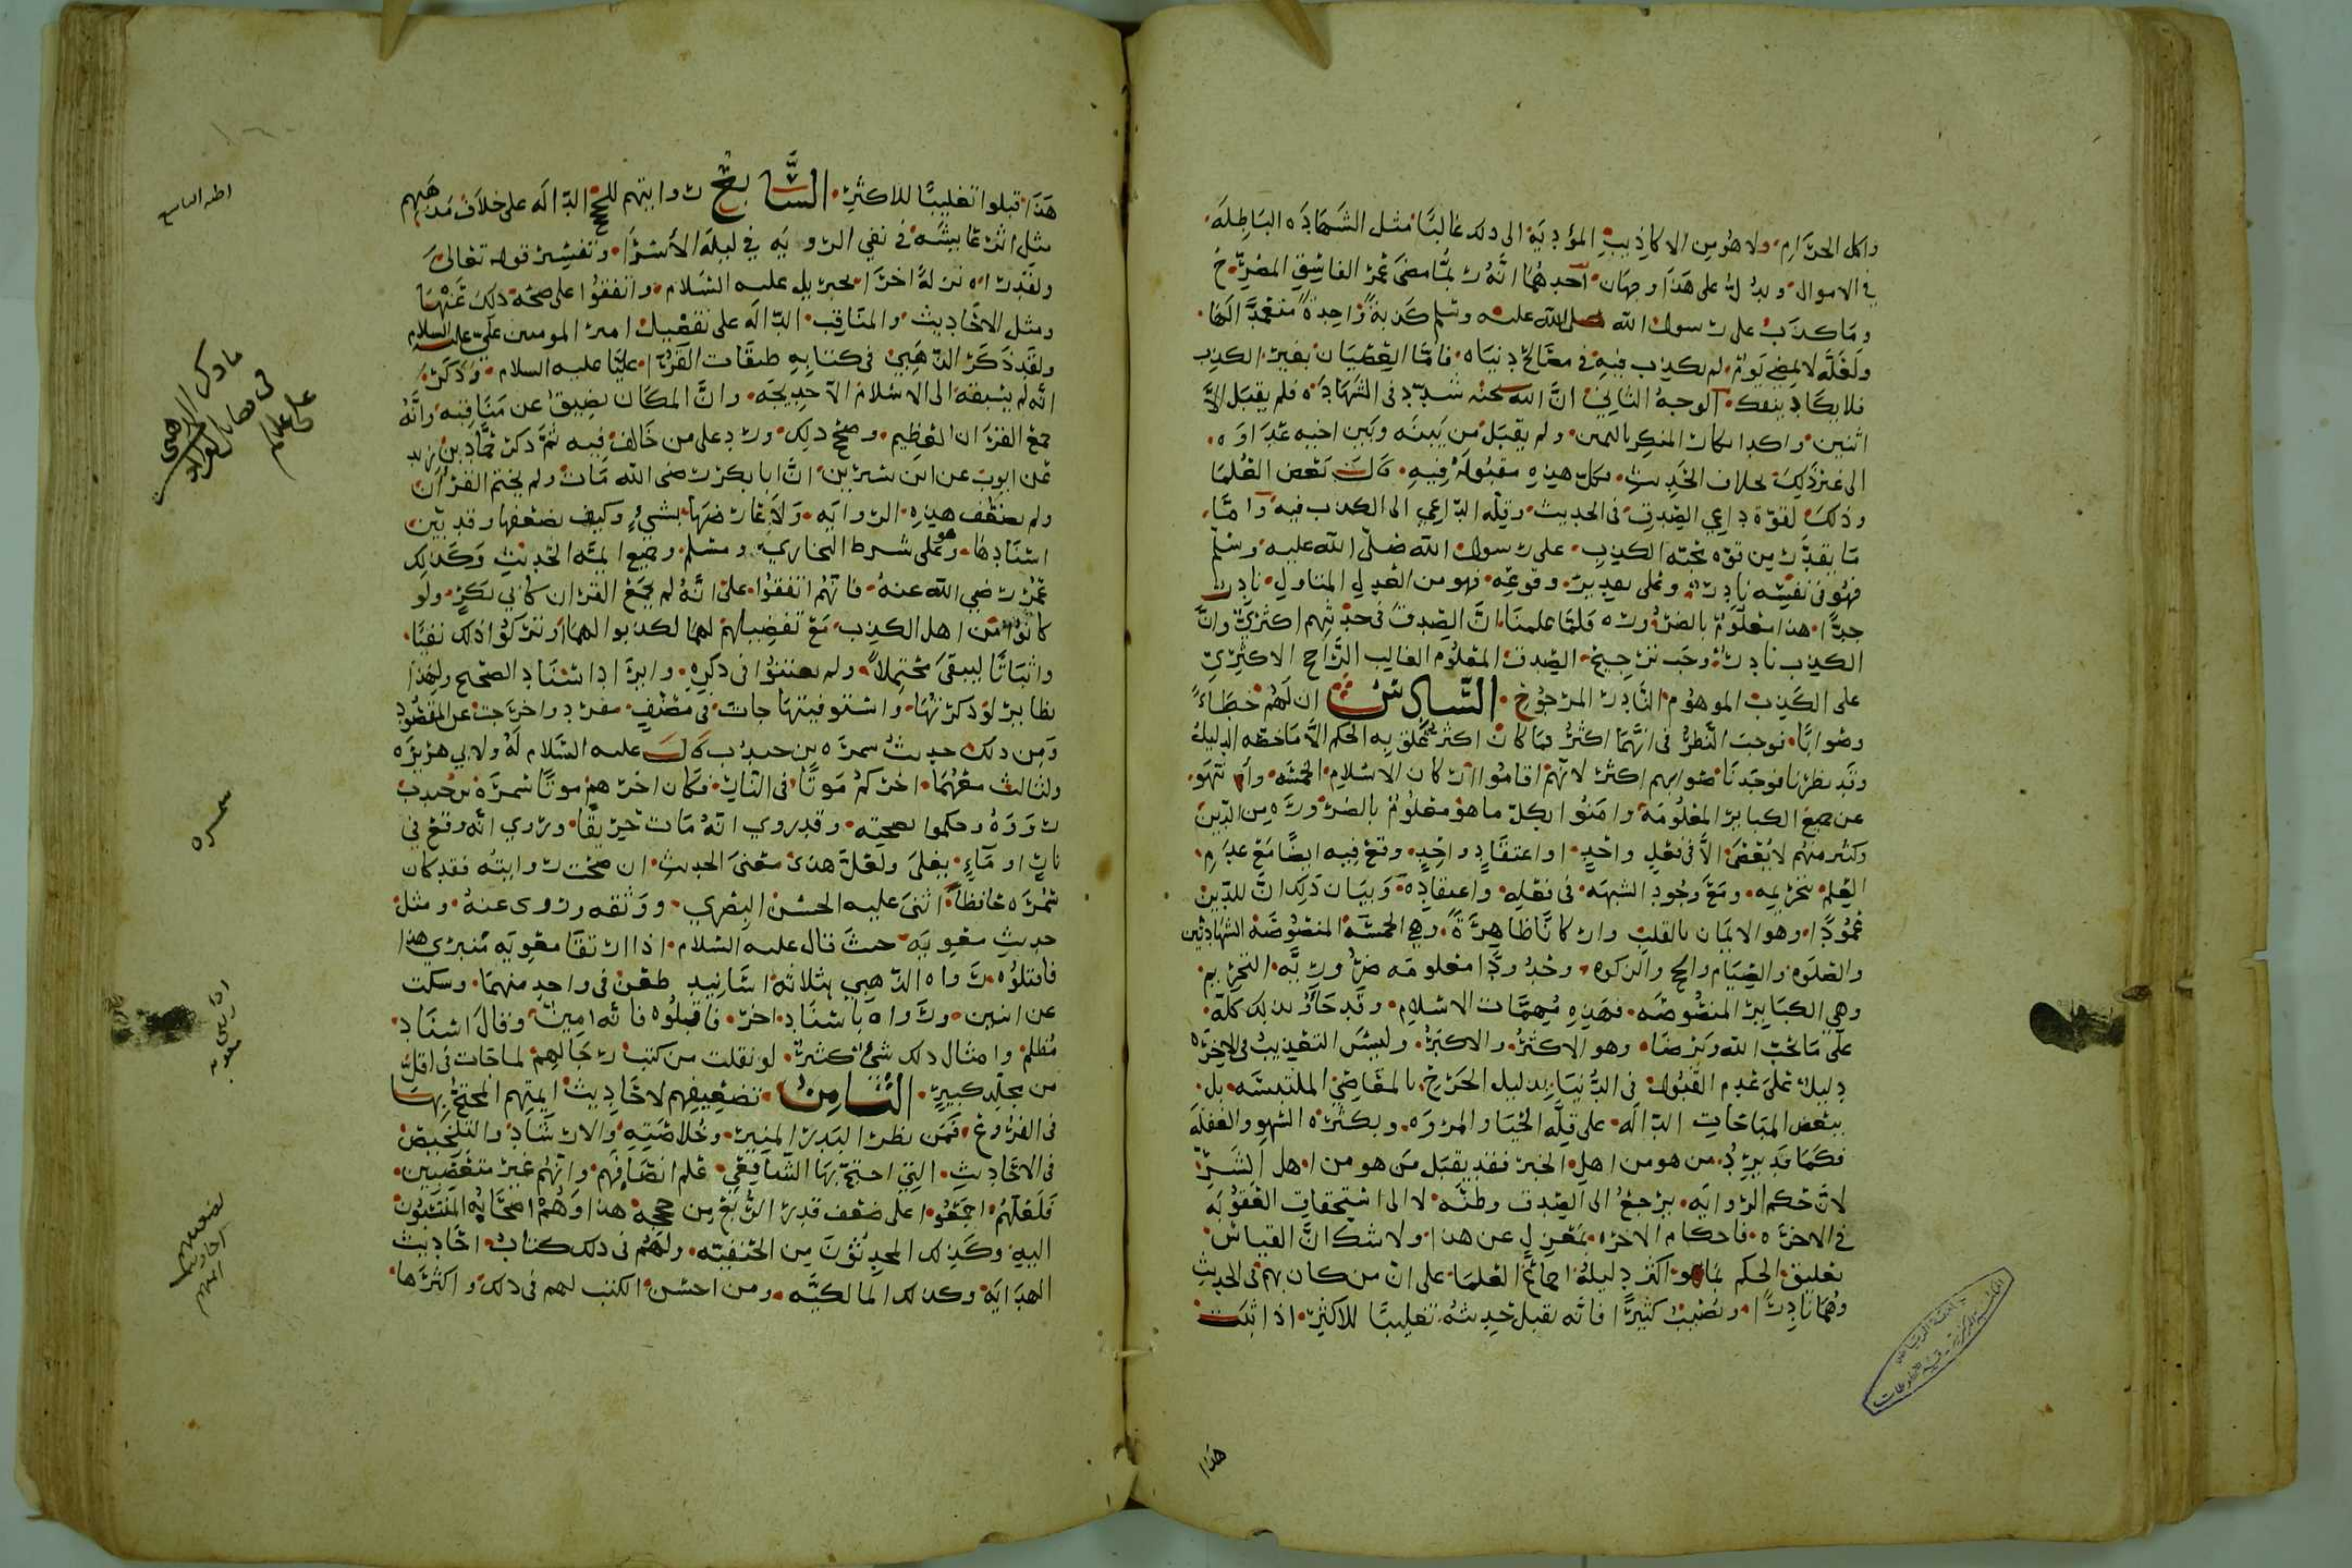 واكل الحرام ولا هو من الاكاذيب المؤدية الى ذلك غالبًا مثل الشهادة الباطلة
في الاموال ويدل على هذا وجهان احدهما انه لما مضى عمر الفاسق المصرح
وما كذب على رسول الله صلى الله عليه وسلم كذبة واحدة متعمدًا لها
ولعله لا يمضي يوم لم يكذب فيه في مصالح دنياه فاما العصيان بغير الكذب
فلا يكاد ينفك الوجه الثاني ان الله سبحنه شدد في الشهادة فلم يقبل الا
اثنين واكدا مكان المنكر باليمين ولم يقبل من بينه وبين اخيه عداوه
الى غير ذلك بخلاف الحديث فكل هذه مقبولة فيه قال بعض العلما
وذلك لقوة داعي الصدق في الحديث وقلة الداعي الى الكذب فيه واما
ما يقدر من قوه محبة الكذب على رسول الله صلى الله عليه وسلم
فهو في نفسه نادر وعلى تقدير وقوعه فهو من العدل المتاول نادر
جدًا هذا معلوم بالضروره فلما علمنا ان الصدق في حديثهم اكثري وان
الكذب نادر وجب ترجيح الصدق المعلوم الغالب الراجح الاكثري
على الكذب الموهوم النادر المرجوح السادس ان لهم خطاءً
وصوابًا فوجب النظر في ايهما اكثر فما كان اكثر علق به الحكم الا ما خصه الدليل
وقد نظرنا فوجدنا صوابهم اكثر لانهم اقاموا اركان الاسلام الخمسه وانتهو
عن جميع الكباير المعلومة وامنوا بكل ما هو معلوم بالضرورة من الدين
وكثير منهم لا يعصى الا في فعل واحد او اعتقاد واحد وقع فيه ايضًا مع عدم
العلم بتحريمه ومع وجود الشبهه في فعله واعتقاده وبيان ذلك ان للدين
عمودًا وهو الايمان بالقلب واركانًا ظاهرة وهي الخمسة المنصوصة الشهادتين
والصلوه والصيام والحج والزكوه وحدودًا معلومه ضرورية التحريم
وهي الكباير المنصوصه فهذه مهمات الاسلام وقد حازو بذلك كله
على ما يحب الله ويرضا وهو الاكثر والاكبر وليس التعذيب في الاخره
دليل على عدم القبول في الدنيا بدليل الجرح بالمعاصي الملتبسه بل
ببعض المباحات الداله على قلة الحيا والمروه وبكثره السهو والغفلة
فكما قد يرد من هو من اهل الخير فقد يقبل من هو من اهل الشر
لان حكم الروايه يرجع الى الصدق وظنه لا الى استحقاق العقوبه
في الاخره فاحكام الاخره بمعزل عن هذا ولا شك ان القياس
تعليق الحكم بما هو اكثر دليله اجماع العلما على ان من كان يهم في الحديث
وهمًا نادرًا ويصيب كثيرًا فانه يقبل حديثه تغليبًا للاكثر اذا ثبت
هذا
هذا قبلوا تغليبًا للاكثر السابع روايتهم للحجج الداله على خلاف مذهبهم
مثل اثر عايشه في نفي الرويه في ليلة الاسرا وتفسير قوله تعالى
ولقد راه نزلة اخرا بجبريل عليه السلام واتفقوا على صحة ذلك عنها
ومثل الاحاديث والمناقب الداله على تفضيل امير المومنين علي عليه السلام
ولقد ذكر الذهبي في كتابه طبقات القرا عليًا عليه السلام وذكر
انه لم يسبقه الى الاسلام الا خديجه وان المكان يضيق عن مناقبه وانه
جمع القران العظيم وصحح ذلك ورد على من خالف فيه ثم ذكر حماد بن زيد
عن ايوب عن ابن سيرين ان ابا بكر رضى الله مات ولم يختم القران
ولم يضعف هذه الروايه ولا عارضها بشيء وكيف يضعفها وقد بين
اسنادها وهو على شرط البخاري ومسلم وجميع ايمة الحديث وكذلك
عمر رضي الله عنه فانهم اتفقوا على انه لم يجمع القران كابي بكر ولو
كانوا من اهل الكذب مع تفضيلهم لهما لكذبوا لهما او تركوا ذلك نفيًا
واثباتًا ليبقى محتملًا ولم يعتنوا في ذكره وايراد اسناد الصحيح ولهذا
نظاير لو ذكرتها واستوفيتها جات في مصنف مفرد واخرجت عن المقصود
ومن ذلك حديث سمره بن جندب قال عليه السلام له ولابي هريره
ولثالث معهما اخركم موتًا في النار فكان اخرهم موتًا سمرة بن جندب
رووه وحكموا بصحته وقد روي انه مات حريقًا وروي انه وقع في
نار او ماء يغلى ولعل هذا معنى الحديث ان صحت روايته فقد كان
سمره حافظًا اثنى عليه الحسن البصري ووثقه وروى عنه ومثل
حديث معويه حيث قال عليه السلام اذا ارتقا معويه منبري هذا
فاقتلوه رواه الذهبي بثلاثة اسانيد طعن في واحد منهما وسكت
عن اثنين ورواه باسناد اخر فاقبلوه فانه امين وقال اسناد
مظلم وامثال ذلك شي كثير لو نقلت من كتب رجالهم لما جات في اقل
من مجلد كبير الثامن تضعيفهم لاحاديث ايمتهم المحتج بها
في الفروع فمن نظر البدر المنير وخلاصته والارشاد والتلخيص
في الاحاديث التي احتج بها الشافعي علم انصافهم وانهم غير متعصبين
فلعلهم اجمعوا على ضعف قدر الربع من حججه هذا وهم اصحابه المنتسبون
اليه وكذلك المحدثون من الحنفيه ولهم في ذلك كتاب احاديث
الهدايه وكذلك المالكيه ومن احسن الكتب لهم في ذلك واكثرها
سمره